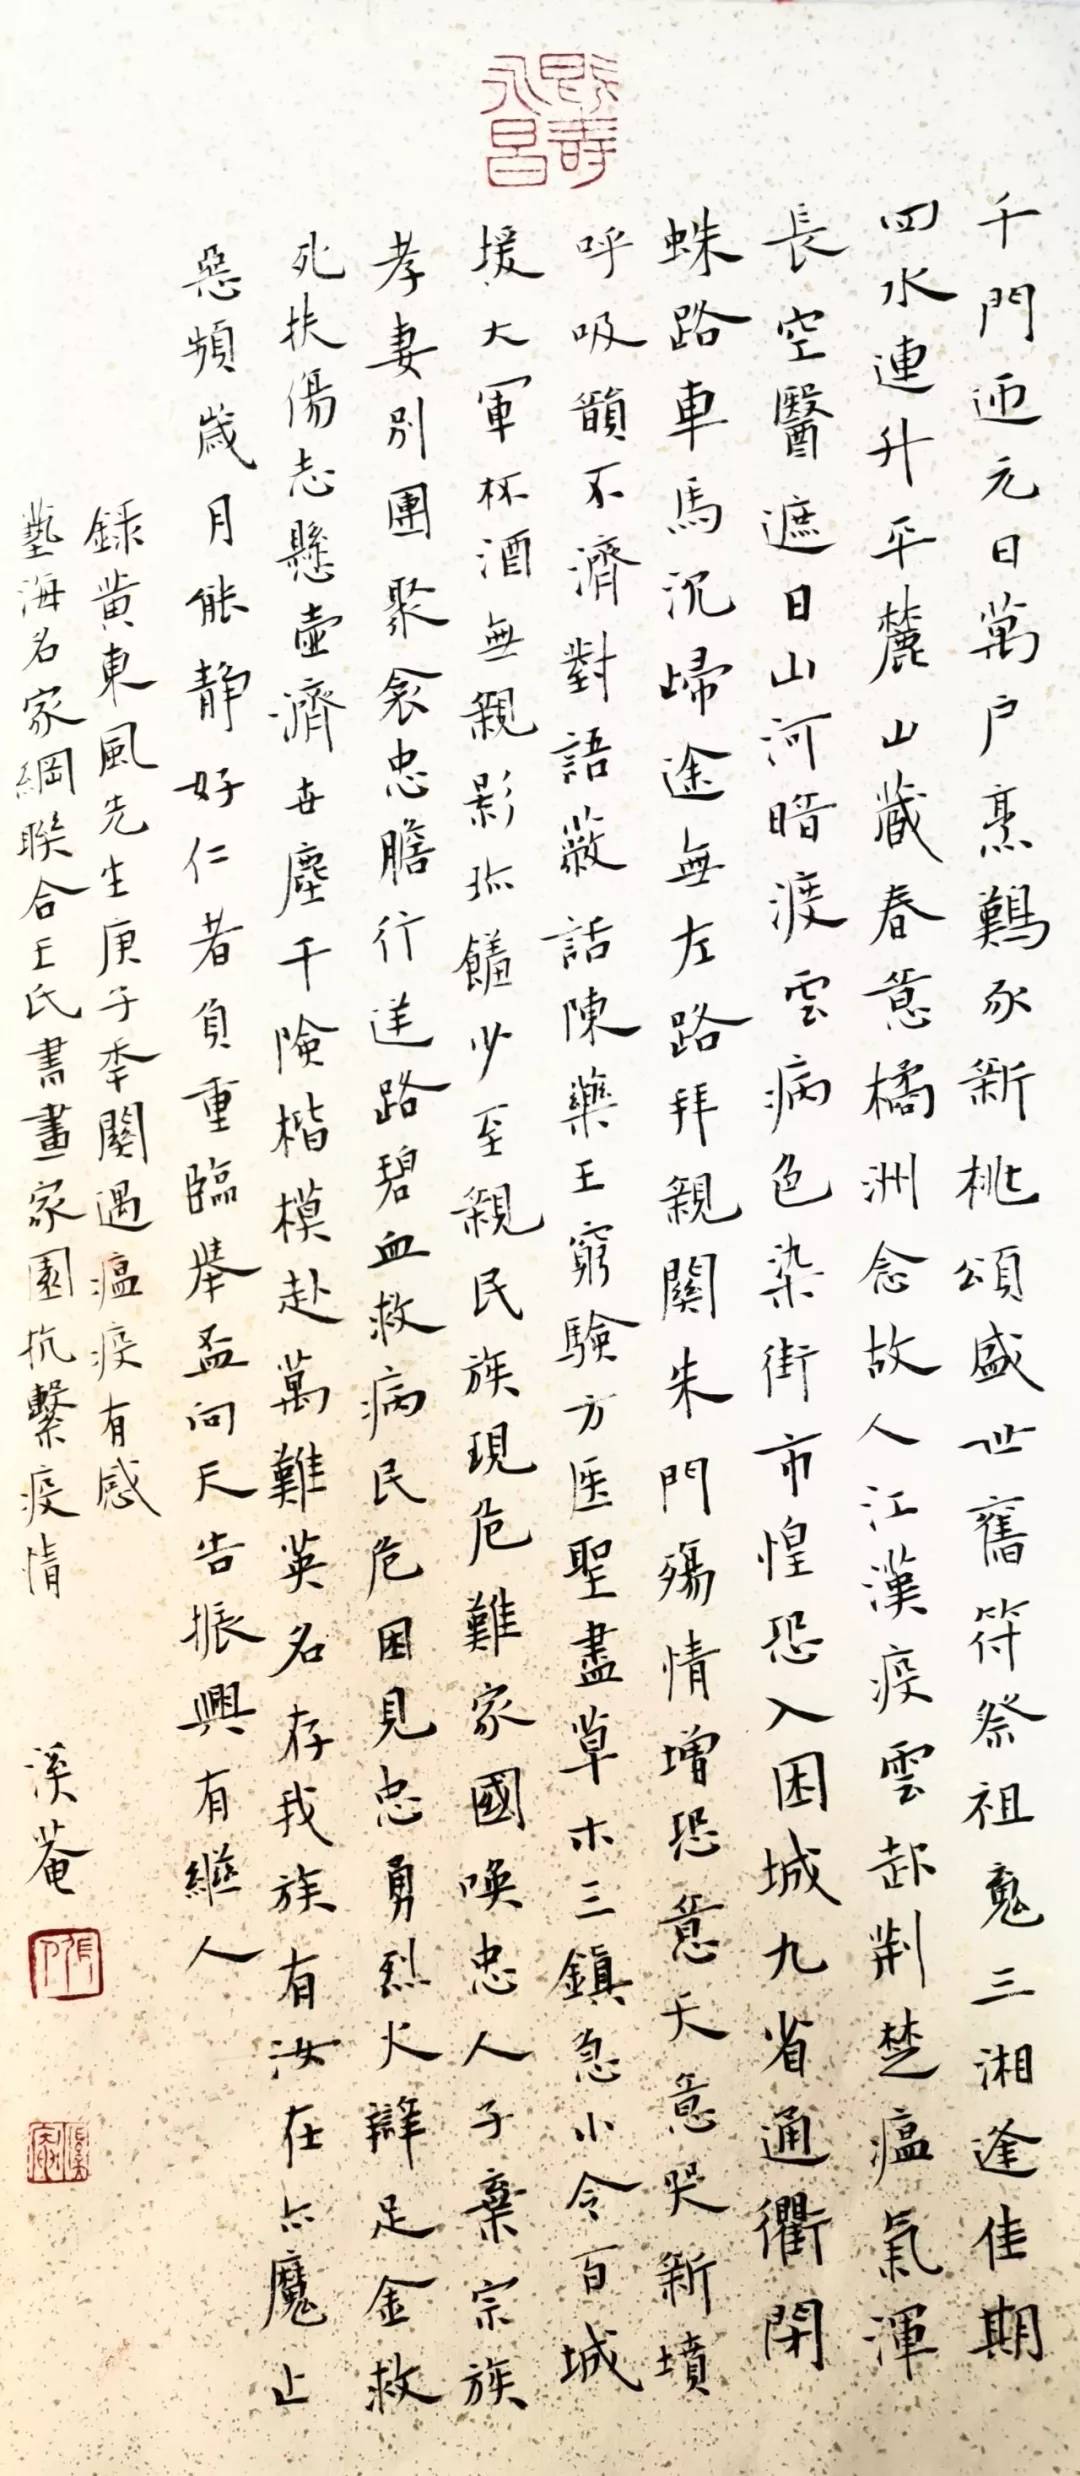 既壽永昌
千門迎元日萬户烹鷄豕新桃頌盛世舊符祭祖魂三湘逢佳期
四水連升平麓山藏春意橘洲念故人江漢疫雲起荆楚瘟氣渾
長空醫遮日山河暗渡雲病色染街市惶恐入困城九省通衢閉
蛛路車馬沉歸途無左路拜親關朱門殤情增恐意天意哭新墳
呼吸不濟對語蔽話陳藥王窮驗方医聖盡草木三鎮急小令百城
援大軍杯酒無親影孤饈少至親民族現危難家國唤忠人子棄宗族
孝妻别團聚衾忠膽行逆路碧血救病民危困見忠勇烈火辯足金救
死扶傷志懸壺濟世塵千險楷模赴萬難英名存我族有汝在魔止
惡頻歲月能静好仁者負重臨舉盃向天告振興有繼人
録黄東風先生庚子年關遇瘟疫有感
藝海名家網聯合王氏書畫家園抗繫疫情 溪菴